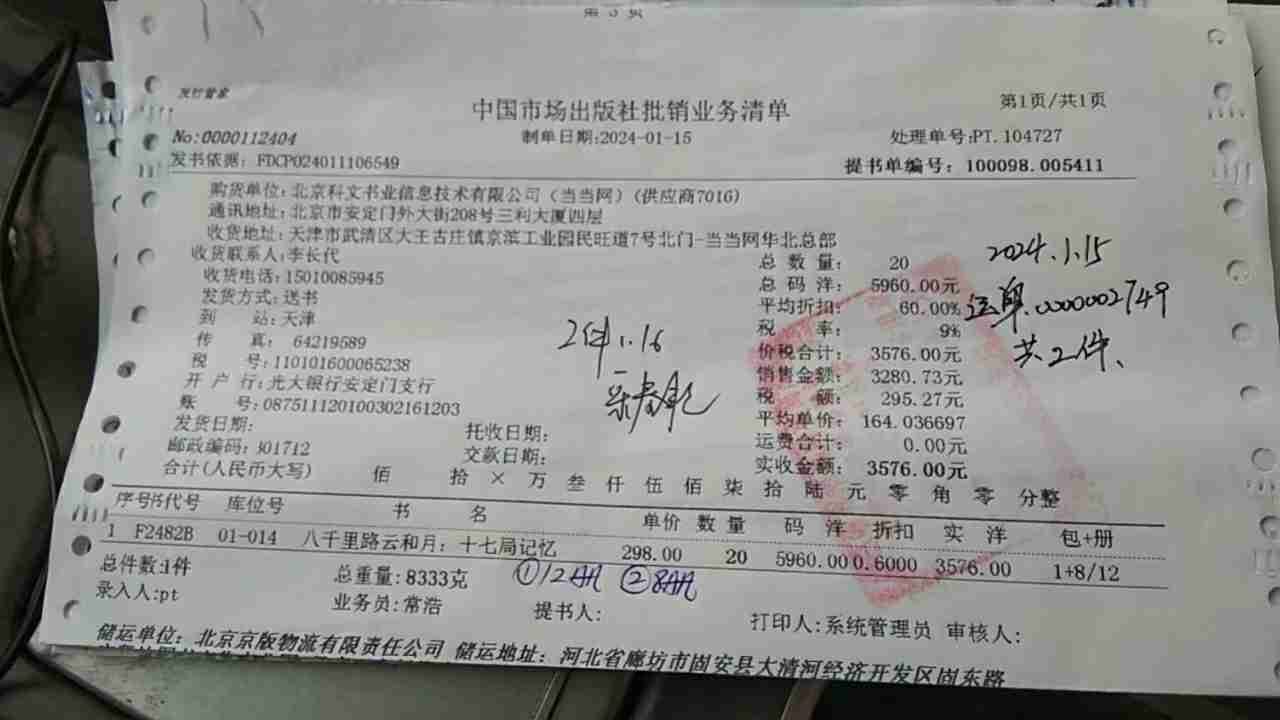 发行管家
中国市场出版社批销业务清单
第1页/共1页
No:0000112404
制单日期:2024-01-15
处理单号:PT.104727
发书依据: FDCP024011106549
提书单编号: 100098.005411
购货单位: 北京科文书业信息技术有限公司（当当网）(供应商7016)
通讯地址: 北京市安定门外大街208号三利大厦四层
收货地址: 天津市武清区大王古庄镇京滨工业园民旺道7号北门-当当网华北总部
收货联系人: 李长代
总 数 量: 20
2024.1.15
收货电话: 15010085945
总 码 洋: 5960.00元
发货方式: 送书
平均折扣: 60.00%
运单.0000002749
到 站: 天津
税 率: 9%
传 真: 64219589
价税合计: 3576.00元
共2件、
2件1.16
税 号: 110101600065238
销售金额: 3280.73元
开 户 行: 光大银行安定门支行
税 额: 295.27元
账 号: 0875111201003021​61203
平均单价: 164.036697
发货日期:
托收日期:
运费合计: 0.00元
邮政编码: 301712
交款日期:
实收金额: 3576.00元
合计(人民币大写) 佰 拾 × 万 叁 仟 伍 佰 柒 拾 陆 元 零 角 零 分整
序号书代号 库位号 书 名 单价 数 量 码 洋 折扣 实 洋 包+册
1 F2482B 01-014 八千里路云和月: 十七局记忆 298.00 20 5960.00 0.6000 3576.00 1+8/12
总件数:1件
总重量: 8333克
①12 ②8
录入人:pt
业务员: 常浩
提书人:
打印人: 系统管理员 审核人:
储运单位: 北京京版物流有限责任公司 储运地址: 河北省廊坊市固安县大清河经济开发区固东路